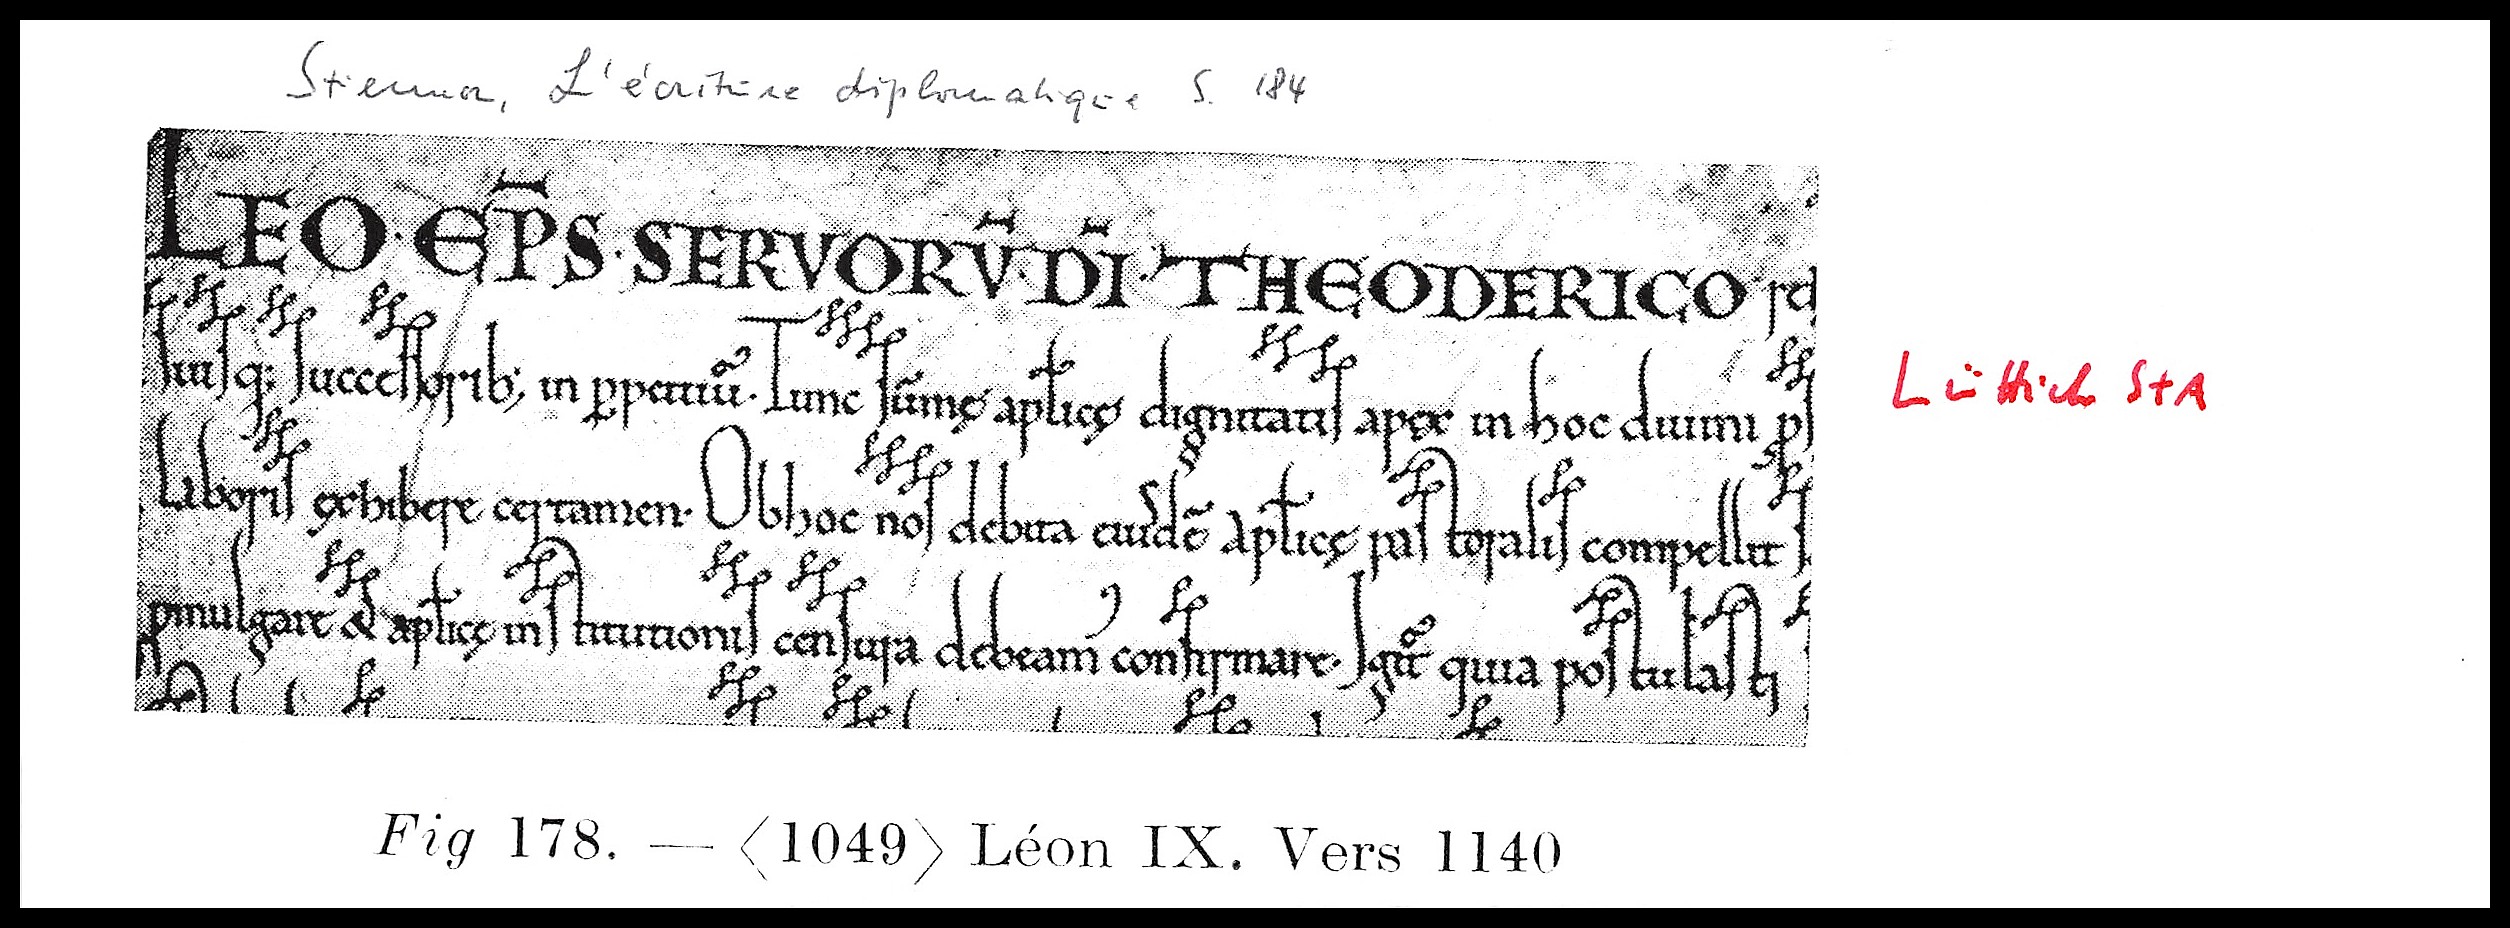 Stiennon, L'écriture diplomatique S. 184
LEO · EP̄S · SERVORV̄ · DĪ · THEODERICO · sc
suisq; successorib; in ꝑpetuū. Tunc sūmę apl̓icę dignitatis apex in hoc diuini
Laboris exhibere certamen. Ob hoc nos debita eiusdē apl̓icę pastoralis compellit s
pmulgare & apl̓icę institutionis censura debeam confirmare. Igit̄ quia postulasti
Lüttich StA
Fig 178. — ⟨1049⟩ Léon IX. Vers 1140